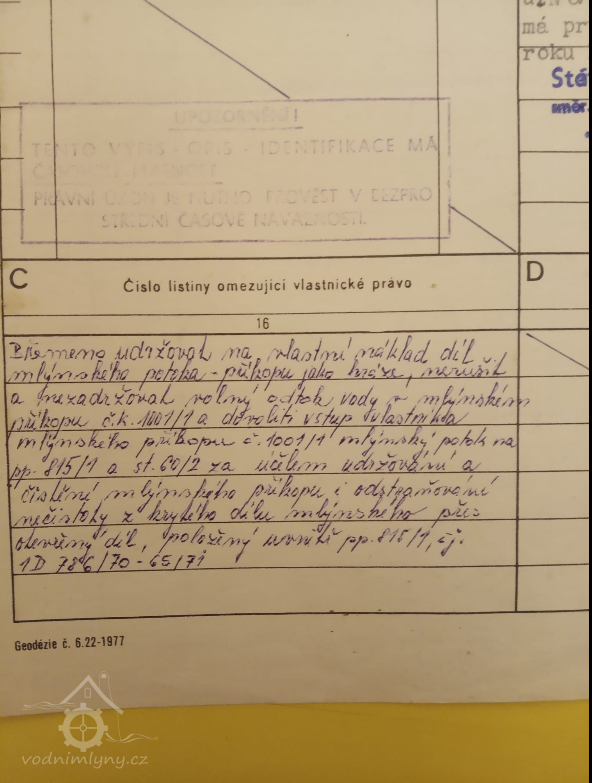 má pr
roku
Sté
UPOZORNĚNÍ!
TENTO VÝPIS - OPIS - IDENTIFIKACE MÁ
ČASOVOU PLATNOST.
PRÁVNÍ ÚKON JE NUTNO PROVÉST V BEZPRO
STŘEDNÍ ČASOVÉ NÁVAZNOSTI.
C
Číslo listiny omezující vlastnické právo
D
16
Břemeno udržovat na vlastní náklad díl
mlýnského potoka - příkopu jako hráze, nerušit
a nezadržovat volný odtok vody v mlýnském
příkopu č.k. 1001/1 a dovoliti vstup vlastníka
mlýnského příkopu č. 1001/1 mlýnský potok na
pp. 815/1 a st. 60/2 za účelem udržování a
čistění mlýnského příkopu i odstraňování
nečistoty z krytého dílu mlýnského přes
otevřený díl, položený uvnitř pp. 815/1, čj.
1D 786/70 - 65/71
Geodézie č. 6.22-1977
vodnimlyny.cz